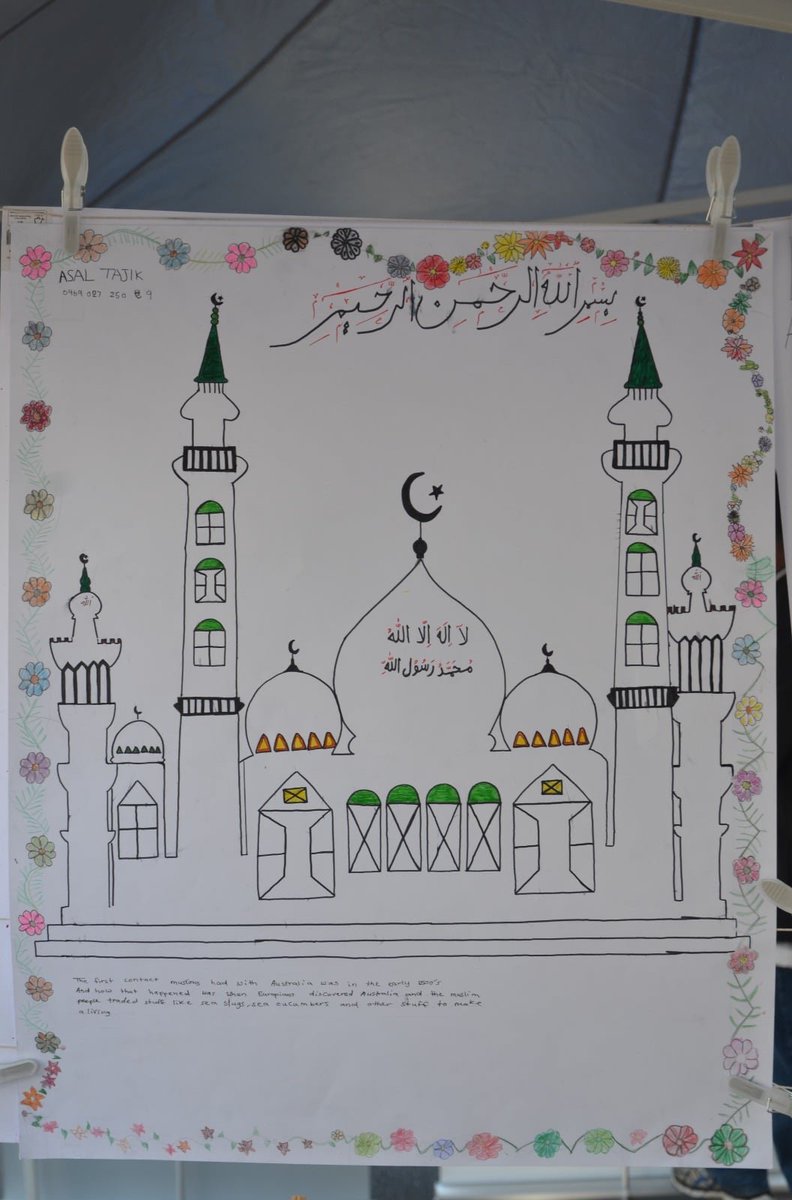 ASAL TAJIK
0469 027 250
بِسْمِ اللهِ الرَّحْمنِ الرَّحِيمِ
الله
الله
لَا اِلَهَ اِلَّا اللهُ
مُحَمَّدْ رَسُوْلُ اللهِ
The first contact muslims had with Australia was in the early 1500's
And how that happened was when Europians discovered Australia and the muslim
people traded stuff like sea slugs, sea cucumbers and other stuff to make
a living